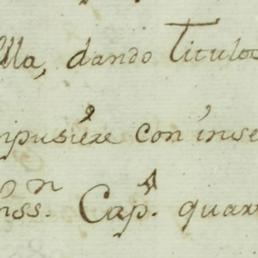 lla, dando Titulos
mpusiére con inse
inss. Cap. quar